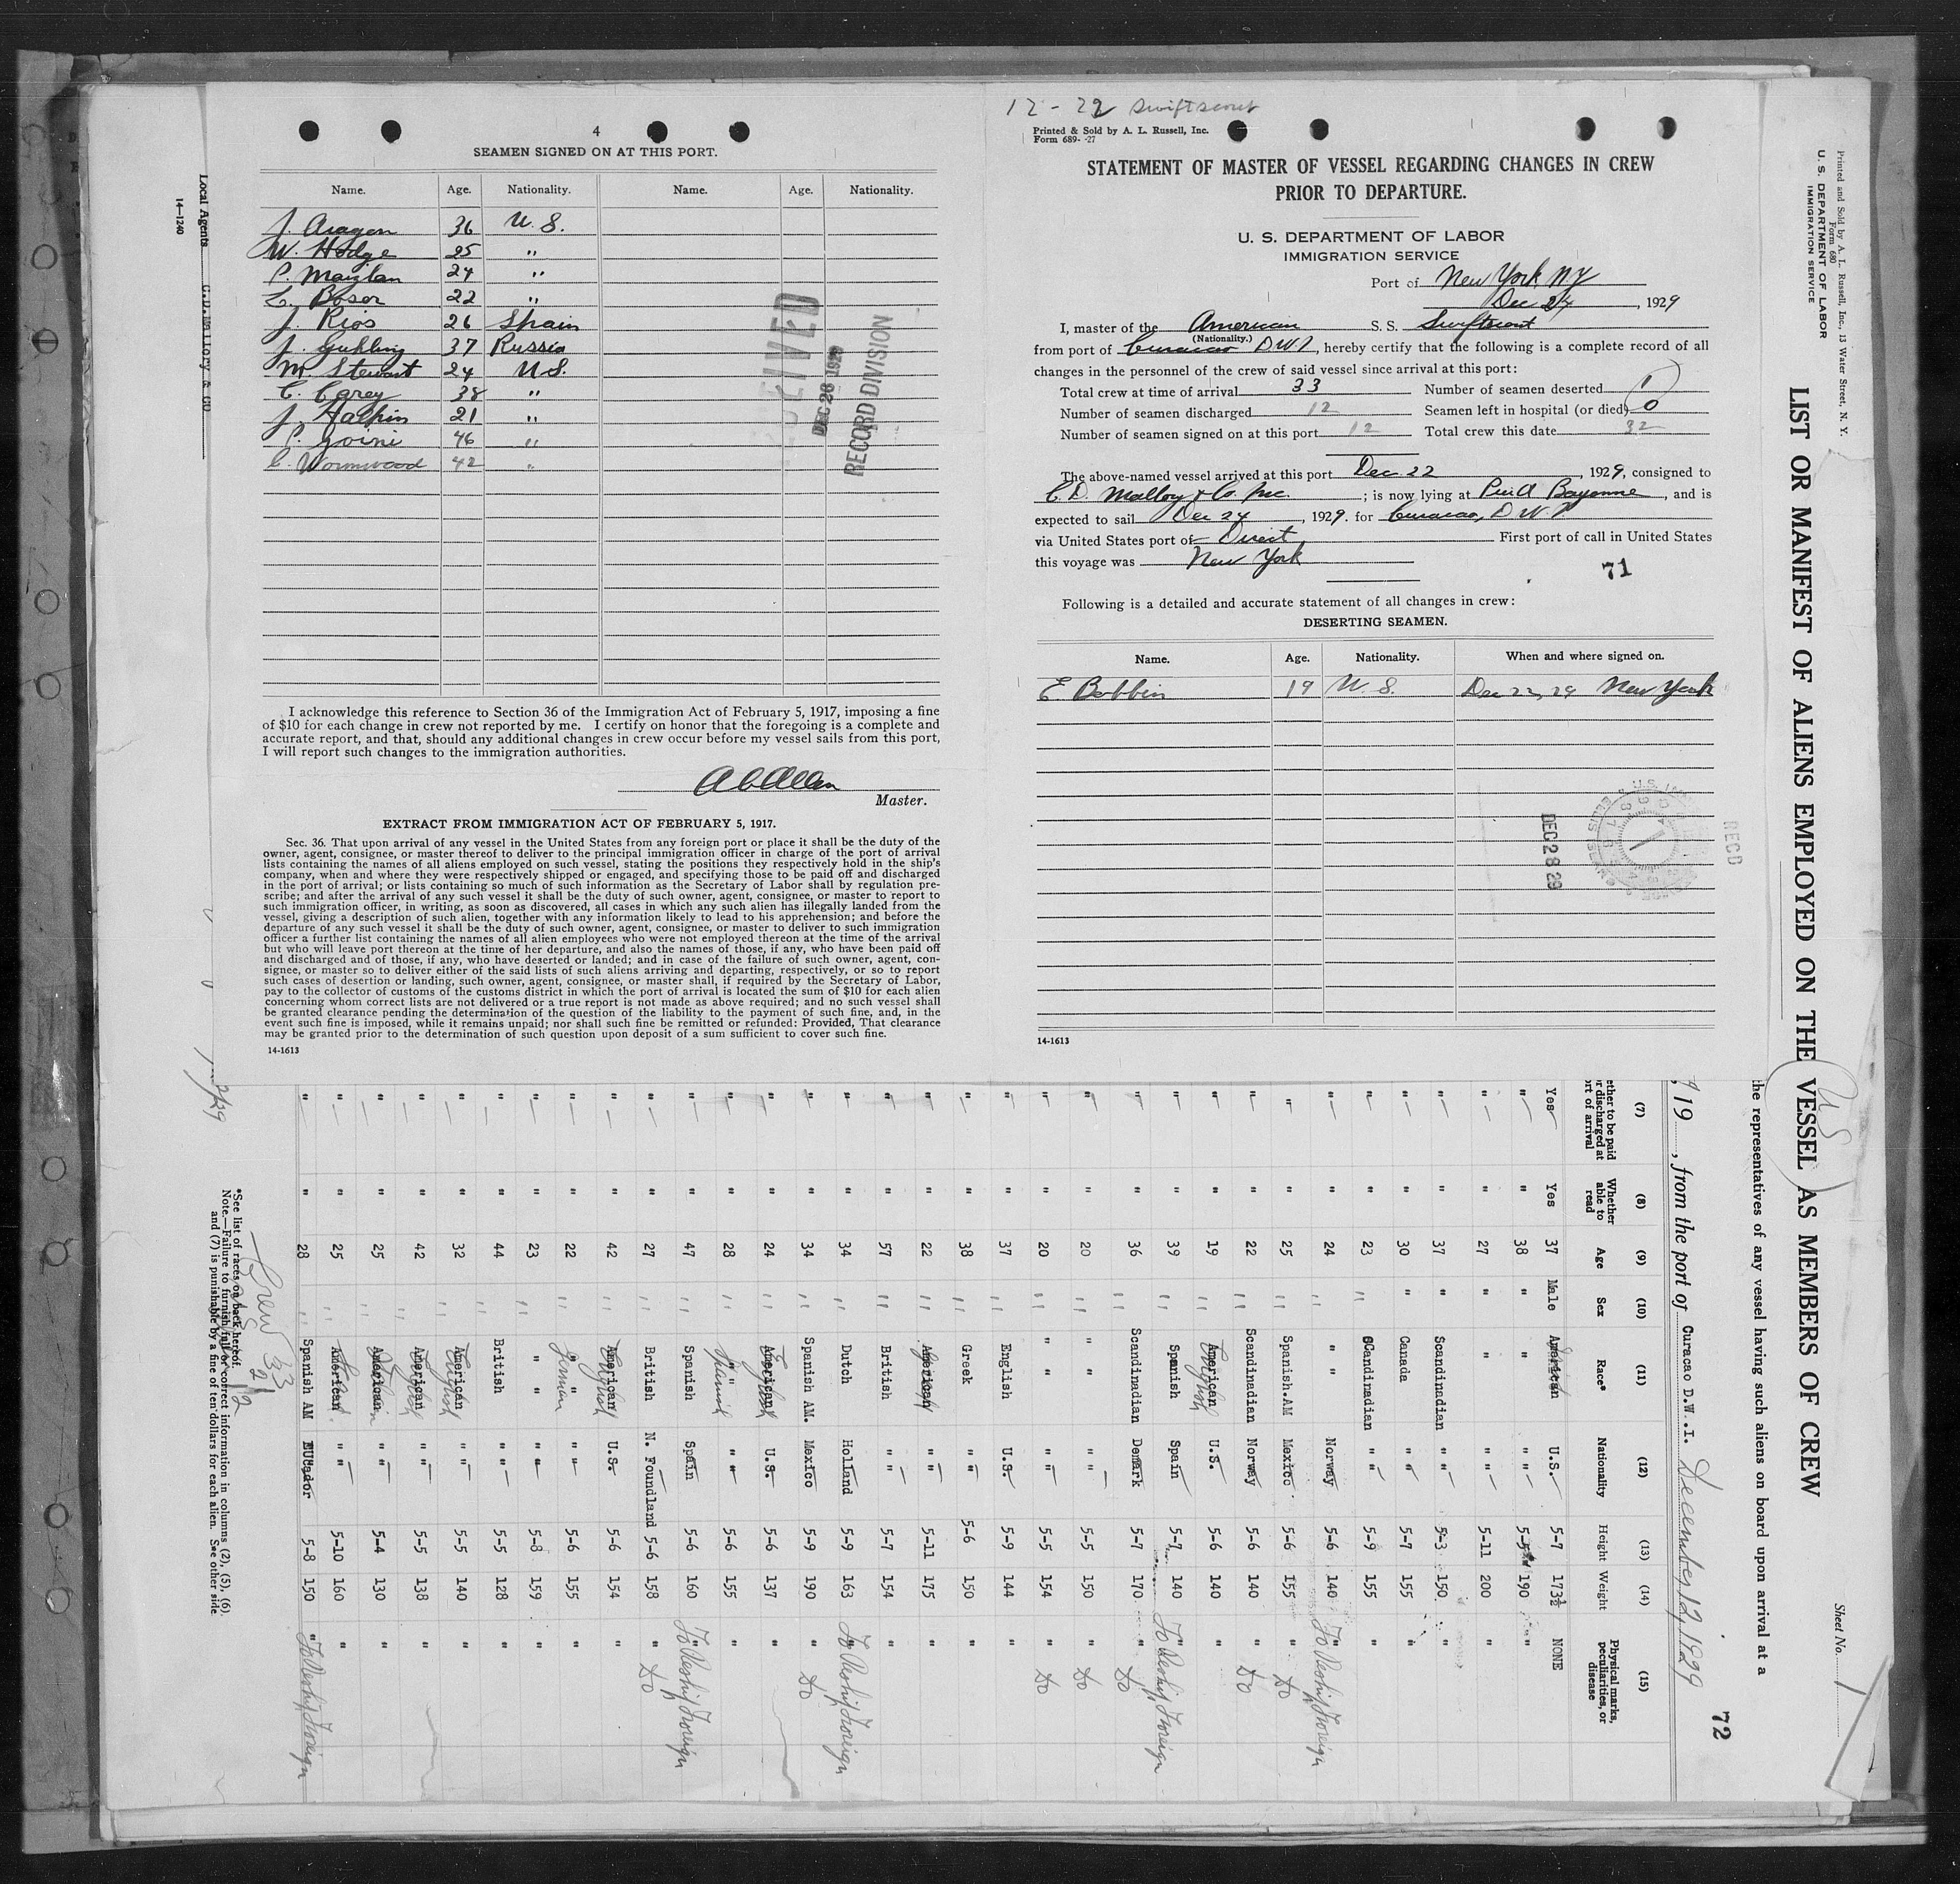 4
SEAMEN SIGNED ON AT THIS PORT.
Name. Age. Nationality. Name. Age. Nationality.
J. Aragon 36 U.S.
W. Hodge 25 "
P. 24 "
Boser 22 "
J. Rios 26 Spain
J. 37 Russia
M. Stewart 24 U.S.
C. Carey 38 "
J. Halpin 21 "
P. 46 "
C. Wormwood 42 "
DEC 28 1929
RECORD DIVISION
I acknowledge this reference to Section 36 of the Immigration Act of February 5, 1917, imposing a fine
of $10 for each change in crew not reported by me. I certify on honor that the foregoing is a complete and
accurate report, and that, should any additional changes in crew occur before my vessel sails from this port,
I will report such changes to the immigration authorities.
Master.
EXTRACT FROM IMMIGRATION ACT OF FEBRUARY 5, 1917.
Sec. 36. That upon arrival of any vessel in the United States from any foreign port or place it shall be the duty of the
owner, agent, consignee, or master thereof to deliver to the principal immigration officer in charge of the port of arrival
lists containing the names of all aliens employed on such vessel, stating the positions they respectively hold in the ship's
company, when and where they were respectively shipped or engaged, and specifying those to be paid off and discharged
in the port of arrival; or lists containing so much of such information as the Secretary of Labor shall by regulation pre-
scribe; and after the arrival of any such vessel it shall be the duty of such owner, agent, consignee, or master to report to
such immigration officer, in writing, as soon as discovered, all cases in which any such alien has illegally landed from the
vessel, giving a description of such alien, together with any information likely to lead to his apprehension; and before the
departure of any such vessel it shall be the duty of such owner, agent, consignee, or master to deliver to such immigration
officer a further list containing the names of all alien employees who were not employed thereon at the time of the arrival
but who will leave port thereon at the time of her departure, and also the names of those, if any, who have been paid off
and discharged and of those, if any, who have deserted or landed; and in case of the failure of such owner, agent, con-
signee, or master so to deliver either of the said lists of such aliens arriving and departing, respectively, or so to report
such cases of desertion or landing, such owner, agent, consignee, or master shall, if required by the Secretary of Labor,
pay to the collector of customs of the customs district in which the port of arrival is located the sum of $10 for each alien
concerning whom correct lists are not delivered or a true report is not made as above required; and no such vessel shall
be granted clearance pending the determination of the question of the liability to the payment of such fine, and, in the
event such fine is imposed, while it remains unpaid; nor shall such fine be remitted or refunded: Provided, That clearance
may be granted prior to the determination of such question upon deposit of a sum sufficient to cover such fine.
14-1613
Local Agents C.D.Mallory & CO
14-1240
12 - 22 Swiftscout
Printed & Sold by A. L. Russell, Inc.
Form 689- -27
STATEMENT OF MASTER OF VESSEL REGARDING CHANGES IN CREW
PRIOR TO DEPARTURE.
U. S. DEPARTMENT OF LABOR
IMMIGRATION SERVICE
Port of New York NY
Dec 24, 1929
I, master of the American S. S. Swiftscout
(Nationality.)
from port of Curacao DWI, hereby certify that the following is a complete record of all
changes in the personnel of the crew of said vessel since arrival at this port:
Total crew at time of arrival 33 Number of seamen deserted 1
Number of seamen discharged 12 Seamen left in hospital (or died) 0
Number of seamen signed on at this port 12 Total crew this date 32
The above-named vessel arrived at this port Dec 22, 1929, consigned to
C. D. Mallory & Co. Inc.; is now lying at Bayonne, and is
expected to sail Dec 24, 1929. for Curacao, DWI
via United States port of Direct First port of call in United States
this voyage was New York
71
Following is a detailed and accurate statement of all changes in crew:
DESERTING SEAMEN.
Name. Age. Nationality. When and where signed on.
E. Bobbin 19 U.S. Dec 22, 29 New York
DEC 28 29
RECD
14-1613
Printed and Sold by A. L. Russell, Inc., 13 Water Street, N. Y.
Form 680
U. S. DEPARTMENT OF LABOR
IMMIGRATION SERVICE
Sheet No. 1
LIST OR MANIFEST OF ALIENS EMPLOYED ON THE VESSEL AS MEMBERS OF CREW
the representatives of any vessel having such aliens on board upon arrival at a
72
19 , from the port of Curacao D.W.I. December, 12, 1929
(7) (8) (9) (10) (11) (12) (13) (14) (15)
ether to be paid r discharged at rt of arrival Whether able to read Age Sex Race* Nationality Height Weight Physical marks, peculiarities, or disease
Yes Yes 37 Male American U.S. 5-7 173½ NONE
" " 38 " " " " 190 "
" " 27 " " " " 5-11 200 "
" " 37 " Scandinadian " " 5-3 150 "
" " 30 " Canada " " 5-7 155 "
" " 23 " Scandinadian " " 5-9 155 "
" " 24 " " " Norway 5-6 140 " To Reship Foreign
" " 25 " Spanish.AM Mexico 5-6 155 " Do
" " 22 " Scandinadian Norway 5-6 140 " Do
" " 19 " American English U.S. 5-6 140 "
" " 39 " Spanish Spain 5-7 140 " To Reship Foreign
" " 36 " Scandinadian Demark 5-7 170 " Do
" " 20 " " " " " 5-5 150 " Do
" " 20 " " " " " 5-5 154 " Do
" " 37 " English U.S. 5-9 144 "
" " 38 " Greek " " 5-6 150 "
" " 22 " American " " 5-11 175 "
" " 57 " British " " 5-7 154 "
" " 34 " Dutch Holland 5-9 163 " To Reship Foreign
" " 34 " Spanish AM. Mexico 5-9 190 " Do
" " 24 " American English U.S. 5-6 137 "
" " 28 " " " Spanish " " 5-6 155 "
" " 47 " Spanish Spain 5-6 160 " To Reship Foreign
" " 27 " British N. Foundland 5-6 158 " Do
" " 42 " American English U.S. 5-6 154 "
" " 22 " " " German " " 5-6 155 "
" " 23 " " " " " 5-8 159 "
" " 44 " British " " 5-5 128 "
" " 32 " American English " " 5-5 140 "
" " 42 " American English " " 5-5 138 "
" " 25 " American " " 5-4 130 "
" " 25 " American " " 5-10 160 "
" " 28 " Spanish AM EUCador 5-8 150 " To Reship Foreign
Crew 33
*See list of races on back hereof.
Note.—Failure to furnish full or correct information in columns (2), (5), (6),
and (7) is punishable by a fine of ten dollars for each alien. See other side.